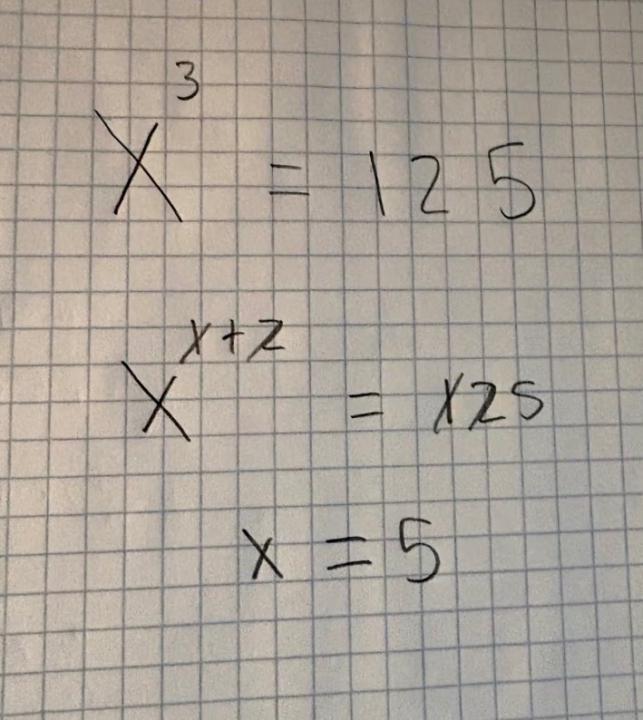 x³ = 125
x^(x+2) = x25
x = 5